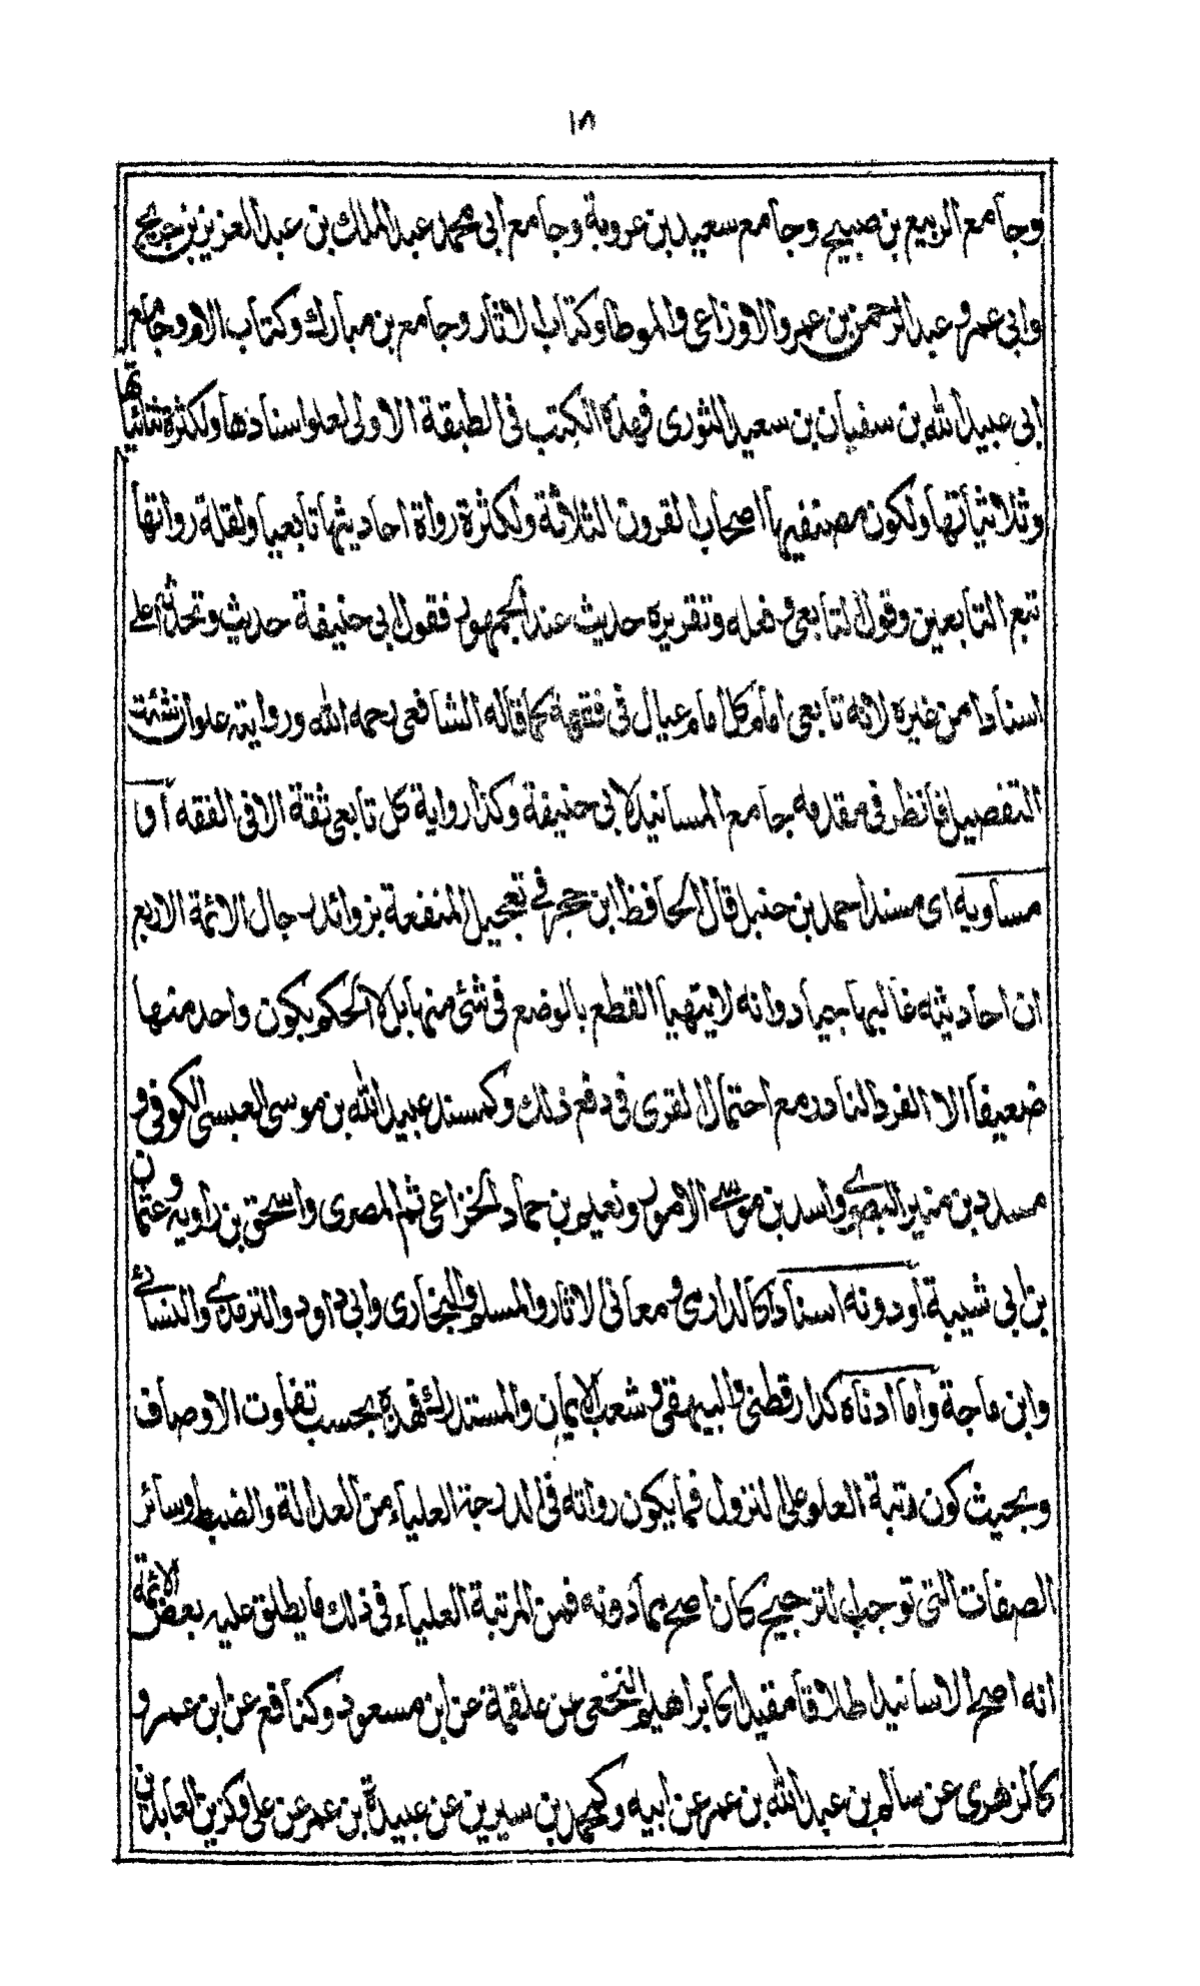 ١٨
وجامع الربيع بن صبيح وجامع سعيد بن عروبة وجامع ابى محمد عبد الملك بن عبد العزيز بن جريج
وابى عمرو عبد الرحمن بن عمرو الاوزاعى والموطا وكتاب الاثار وجامع بن مبارك وكتاب الام وجامع
ابى عبد الله بن سفيان بن سعيد الثورى فهذه الكتب فى الطبقة الاولى لعلو اسنادها ولكثرة ثنائياتها
وثلاثياتها ولكون مصنفيها اصحاب القرون الثلاثة ولكثرة رواة احاديثها تابعيا ولقلة رواتها
تبع التابعين وقول التابعى وفعله وتقريره حديث عند الجمهور فقول ابى حنيفة حديث وتحديثه اعلى
اسنادا من غيره لانه تابعى امام كل امام عيال فى فقهه كما قاله الشافعى رحمه الله وروايته علو ان شئت
التفصيل فانظر فى مقدمه جامع المسانيد لابى حنيفة وكذا رواية كل تابعى ثقة الا فى الفقه او
مساويه اى مسند احمد بن حنبل قال الحافظ ابن حجر فى تعجيل المنفعة بزوائد رجال الائمة الاربع
ان احاديثه غالبها جياد وانه لا يتهيا القطع بالوضع فى شئ منها بل لا الحكم بكون واحد منها
ضعيفا الا الفرد النادر مع احتمال القوى فى دفع ذلك وكمسند عبيد الله بن موسى العبسى الكوفى و
مسدد بن البصرے واسد بن موسے الاموى ونعيم بن حماد الخزاعى ثم المصرى واسحق بن راويه وعثمان
بن ابى شيبة او دونه اسنادا كالدارمى و معانى الاثار والمسلم والبخارى وابى داود والترمذے والنسائے
وابن ماجة واما ادناه كدارقطنى والبيهقى و شعب الايمان والمستدرك فهذه بحسب تفاوت الاوصاف
وبحيث كون رتبة العلو على النزول فما يكون رواته فى الدرجة العلياء من العدالة والضبط وسائر
الصفات التى توجب الترجيح كان اصح مما دونه فمن المرتبة العلياء فى ذلك ما يطلق عليه بعض الائمة
انه اصح الاسانيد اطلاقا مقيدا كابراهيم النخعى عن علقمة عن ابن مسعود وكنافع عن ابن عمر و
كالزهرى عن سالم بن عبد الله بن عمر عن ابيه وكمحمد بن سيرين عن عبيدة بن عمر عن على وكزين العابدين